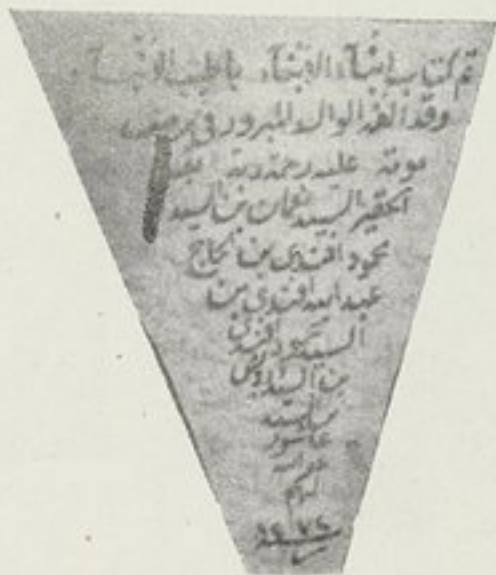 تم كتاب إنباء الابناء باطيب الانباء
وقد الفه الوالد المبرور في مرض
موته عليه رحمة ربه
الحقير السيد نعمان بن السيد
محمود افندي بن الحاج
عبد الله افندي بن
السيد محمود افندي
بن السيد
بن السيد
عاشور
غفر الله
لهم